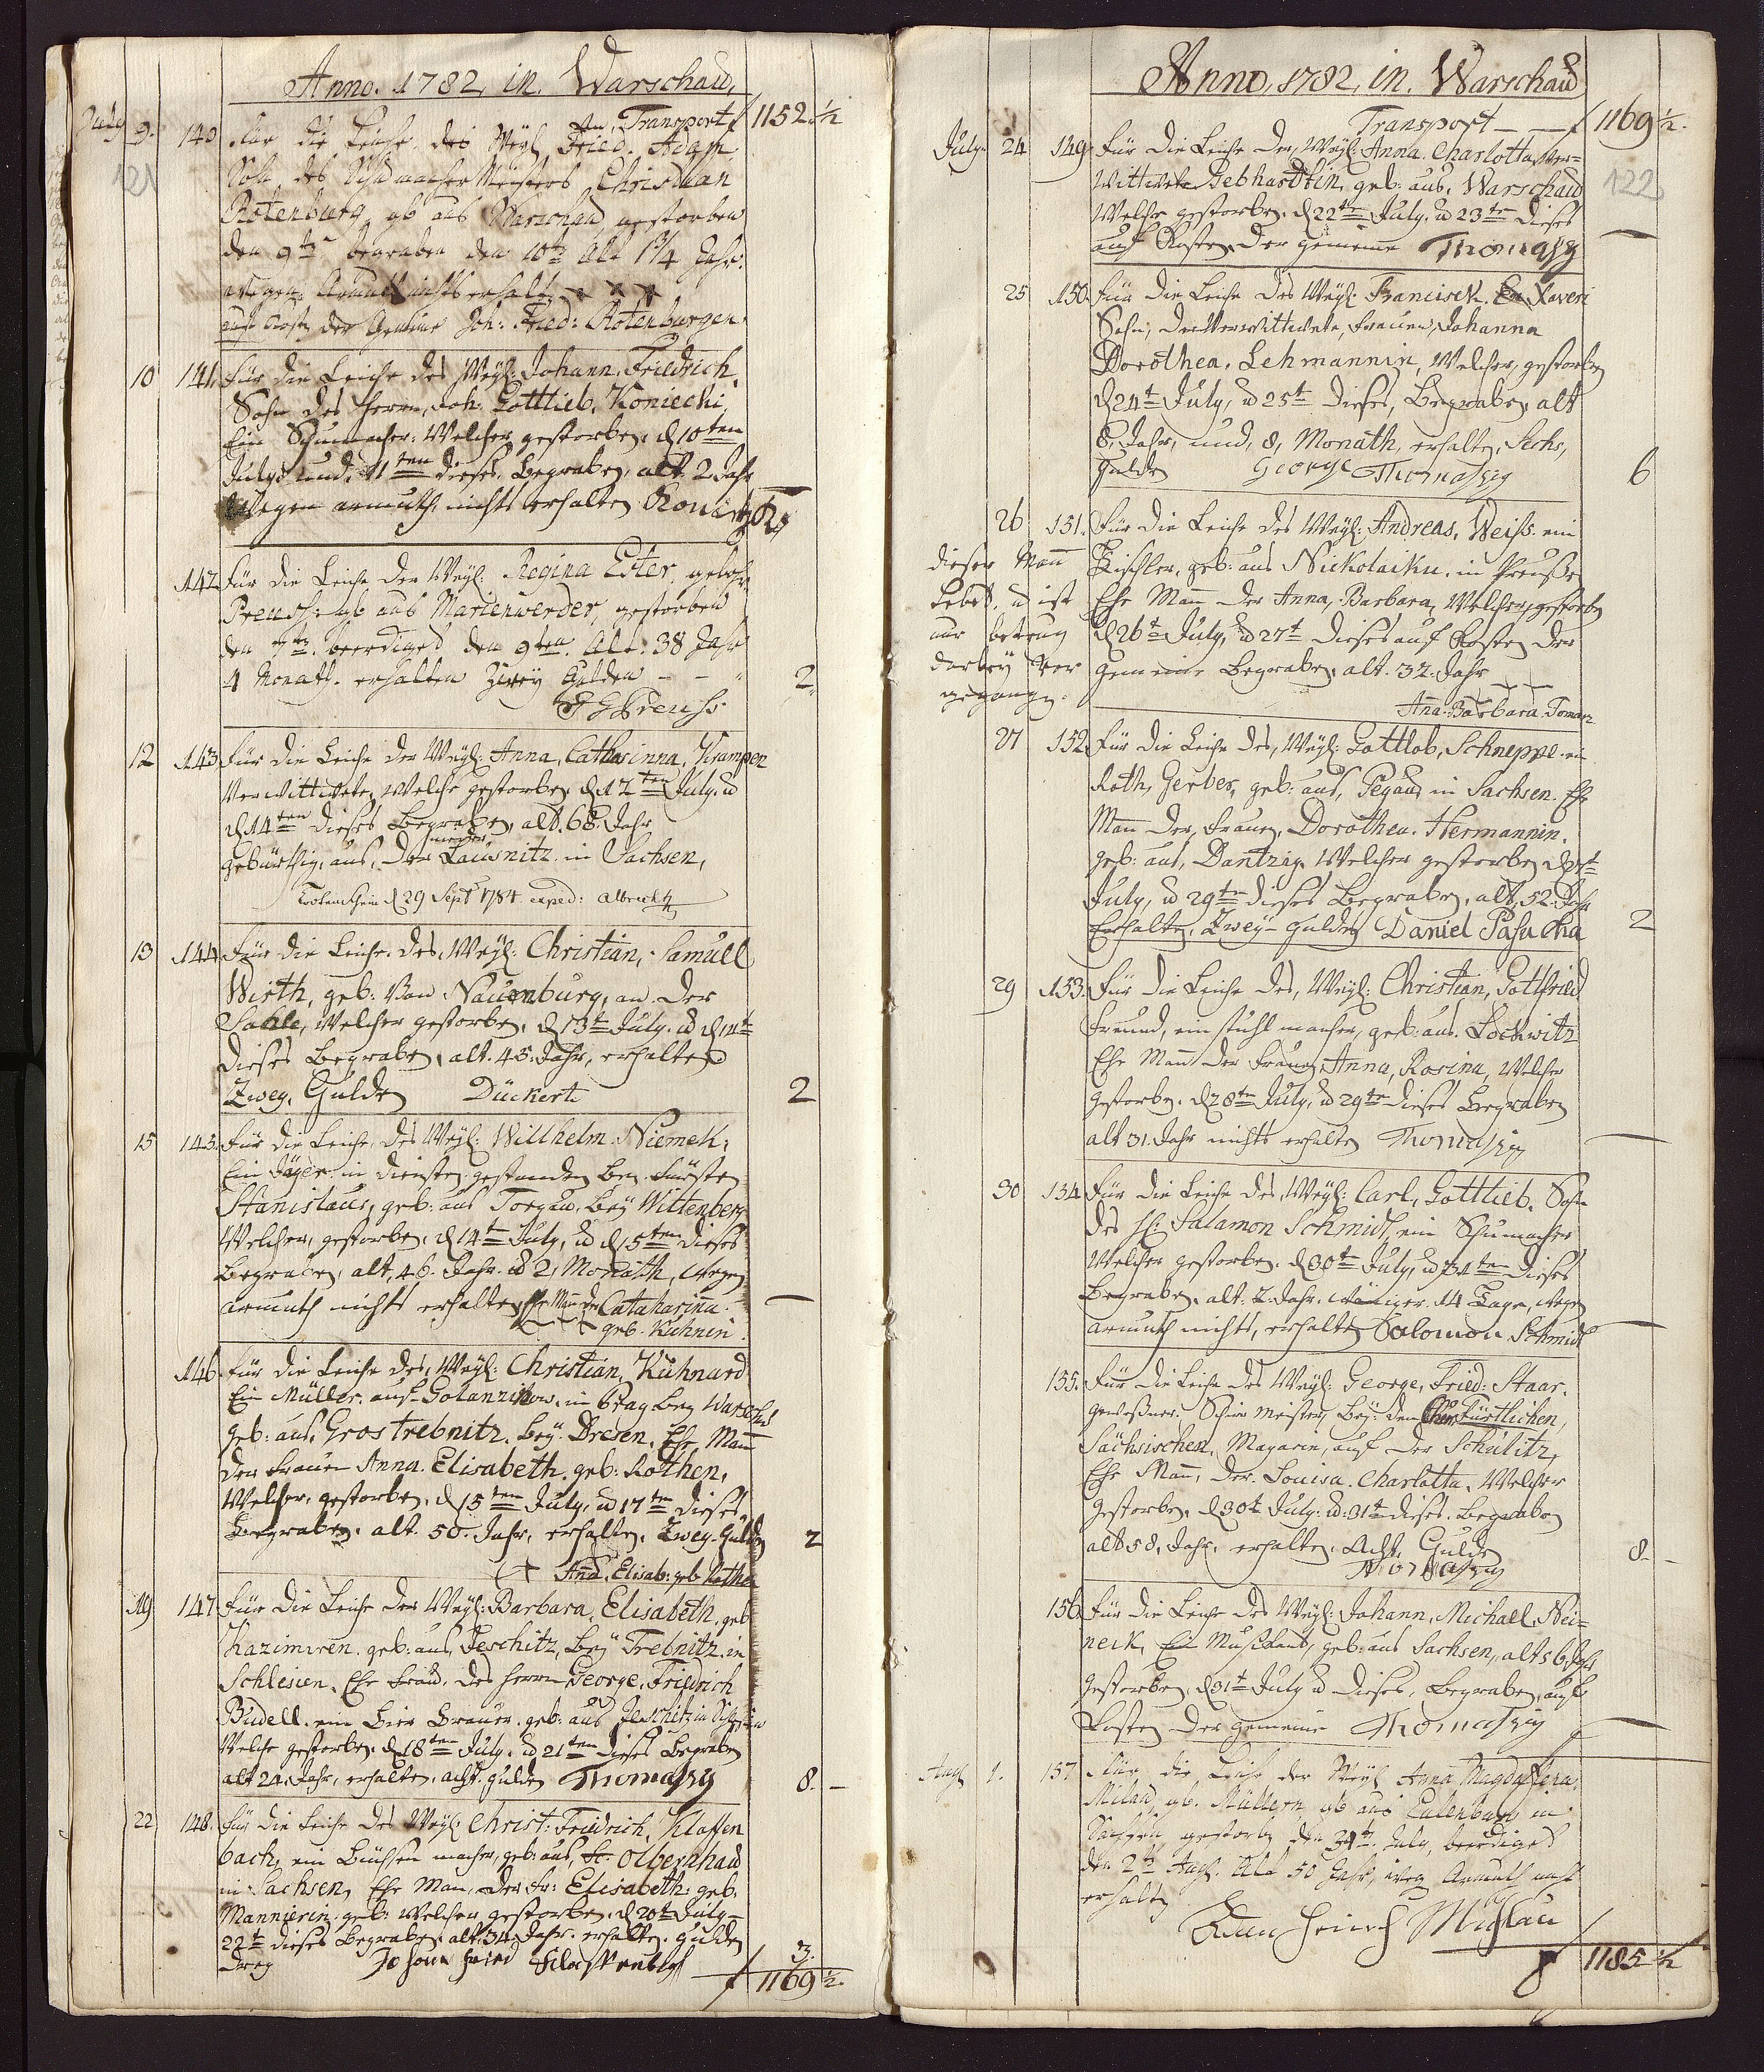 Anno. 1782, in. Warschau,
An Transport f 1152 ½
July 9. 140 Für die Leiche des Weyl Fried. Adam
121
Sohn des Schumacher Meisters Christian
Rotenburg, geb aus Warschau, gestorben
den 9te begraben den 10te Alt 1¾ Jahr.
wegen Armuth nichts erhalt
auf Kosten der Gemeine Joh: Fried: Rotenburgen.
10 141. Für die Leiche des Weyl: Johann, Friedrich,
Sohn des Herrn, Joh: Gottlieb, Koniecki,
Ein Schumacher: Welcher, gestorben, d 10ten
July: und 11ten dieses, Begraben, alt. 2 Jahr
Wegen armuth, nichts erhalten
142 Für die Leiche der Weyl: Regina Ester, gebohr
Preusß: geb aus Marienwerder, gestorben
den 7te. beerdiged den 9ten. Alt: 38 Jahr
4 Monath. erhalten Zwey Gulden - - " 2,,
Preuss
12 143 Für die Leiche der Weyl: Anna, Catharinna, Krampen
Verwittwete, Welche gestorben, d 12ten July. u
d 14ten dieses Begraben, alt. 68. Jahr
gebürthig, aus, der Lausnitz in Sachsen,
d 29 Sept 1784 exped: Albrecht
13 144 Für die Leiche, des, Weyl: Christian, Samuell
Wirth, geb: Von Nauenburg, an der
Saale, Welcher gestorben, d 13t July. u d 14t
dieses Begraben, alt. 45. Jahr, erhalten
Zwey, Gulden Dückert 2
15 145. Für die Leiche, des Weyl: Willhelm. Niemek,
Ein Jäger in diensten gestanden Bey. Fürsten
Stanislaus, geb: aus Torgau, Bey Wittenberg
Welcher, gestorben, d 14t July, u d 15ten dieses
Begraben, alt, 46. Jahr. u 2, Monath, wegen
armuth nichts erhalten Ehe Man der Cataharinna. —
geb. Kuhnin.
146. Für die Leiche des, Weyl: Christian, Kuhnard
Ein Müller. auf Golanzinow. in Prag bey Warschau
geb: aus. Gros Trebnitz. Bey. Dresen, Ehe Mann
der Frauen Anna. Elisabeth. geb: Rothen,
Welcher, gestorben, d 15ten July, u 17te dieses,
Begraben. alt. 50. Jahr, erhalten. Zwey. Gulden 2
Ana. Elisab: geb Rothe
19 147 Für die Leiche der Weyl: Barbara, Elisabeth. geb
Kazimiren. geb: aus, Jeschitz, Bey Trebnitz. in
Schlesien, Ehe Frau. des Herrn George, Friedrich
Budell. ein Bier Brauer. geb: aus Jeschitz in
Welche gestorben. d 18ten July. u 21ten dieses Begraben
alt 24. Jahr, erhalten, acht. Gulden Thomaszy 8. —
22 148. Für die Leiche des Weyl: Christ: Friedrich, Klaffen
bach, ein Büchsen macher, geb: aus, Olbernhau
in Sachsen, Ehe Man, der Fr: Elisabeth: geb.
Mannierin. geb: Welcher gestorben. d 20t July –
22t dieses Begraben alt. 34. Jahr. erhalten. Gulden
Drey Johann fried 3.
f 1169 ½.
Anno, 1782, in. Warschau
Transport — — f 1169 ½.
July. 24 149 Für die Leiche der, Weyl: Anna. Charlotta, Ver=
122
Wittwete Gebhardtin, geb: aus, Warschau
Welche gestorben. d 22te July. u 23te dieses
auf Kosten. der gemeine Thomaszy —
25 150. Für die Leiche des Weyl: Francisek. Xaveri
Sohn; der Verwittwete, Frauen, Johanna
Dorothea. Lehmannin, Welcher, gestorben
d 24t July, u 25t dieses, Begraben, alt
8. Jahr, und, 8, Monath, erhalten, Sechs,
Gulden George Thomaszig 6
26 151. Für die Leiche des Weyl: Andreas, Weiss. ein
dieser Mann
Tischler, geb: aus Nickolaiku. in Preußen
Lebet. u ist
Ehe Man der Anna, Barbara, Welcher, gestorben
nur betrug
d 26t July, u 27t dieses auf Kosten der
darbey Vor
gemeine Begraben, alt. 32. Jahr — —
gegangen.
Ana. Barbara Toman
27 152 Für die Leiche des, Weyl: Gottlob, Schneppe. ein
Roth, Gerber, geb: aus, Pegau, in Sachsen. Ehe
Man der, Frauen, Dorothea. Hermannin.
geb: aus, Dantzig. Welcher gestorben
July, u 29te dieses Begraben, alt, 52. Jahr
Erhalten, Zwey – Gulden Daniel 2
29 153. Für die Leiche des, Weyl: Christian, Gottfried
Freund, ein stuhl macher, geb: aus. Lockwitz
Ehe Man der Frauen, Anna, Rosina, Welcher
Gestorben. d 28te July, u 29te dieses Begraben
alt 31. Jahr nichts erhalten Thomaszig —
30 154 Für die Leiche des, Weyl: Carl, Gottlieb, Sohn
des H: Salamon Schmidt, ein Schumacher
Welcher gestorben. d 30t July, u 31ten dieses
Begraben. alt: 2. Jahr. weniger. 14 Tage, wegen
armuth nichts, erhalten Salomon Schmidt —
155. Für die Leiche des Weyl: George, Fried: Staar.
gewesener. Schir meister, Bey: dem Churfürtlichen,
Sächsischen, Magazin, auf der Schulitz,
Ehe Man, der. Louisa. Charlotta, Welcher
Gestorben. d 30t July: u: 31t dieses. Begraben
alt 58, Jahr, erhalten. Acht, Gulden 8. –
Thomaszig
156. Für die Leiche des Weyl: Johann, Michaell, Nei=
neck, Ein Musicant, geb: aus Sachsen, alt 56 Jahr
Gestorben, d 31t July u dieses, Begraben, auf
Kosten der gemeine Thomaszig —
Aug 1. 157 Für die Leiche der Weyl Anna Magdalena
Milau, geb. Müllern, geb aus Eulenburg in
Sachsen, gestorb den 31te. July, beerdiged
den 2te Aug. Alt 50 Jahr, weg Armuth nicht
erhalten
Heinrich Mihlau
f 1185 ½